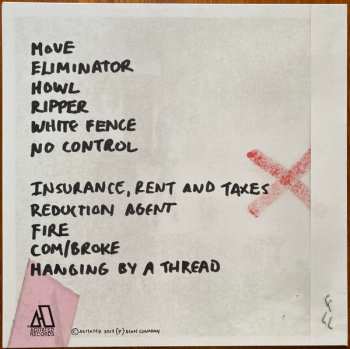 MOVE
ELIMINATOR
HOWL
RIPPER
WHITE FENCE
NO CONTROL
INSURANCE, RENT AND TAXES
REDUCTION AGENT
FIRE
COM/BROKE
HANGING BY A THREAD
RECORDS